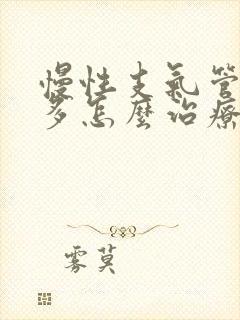 慢性支气管
多怎麼治療
雾莫